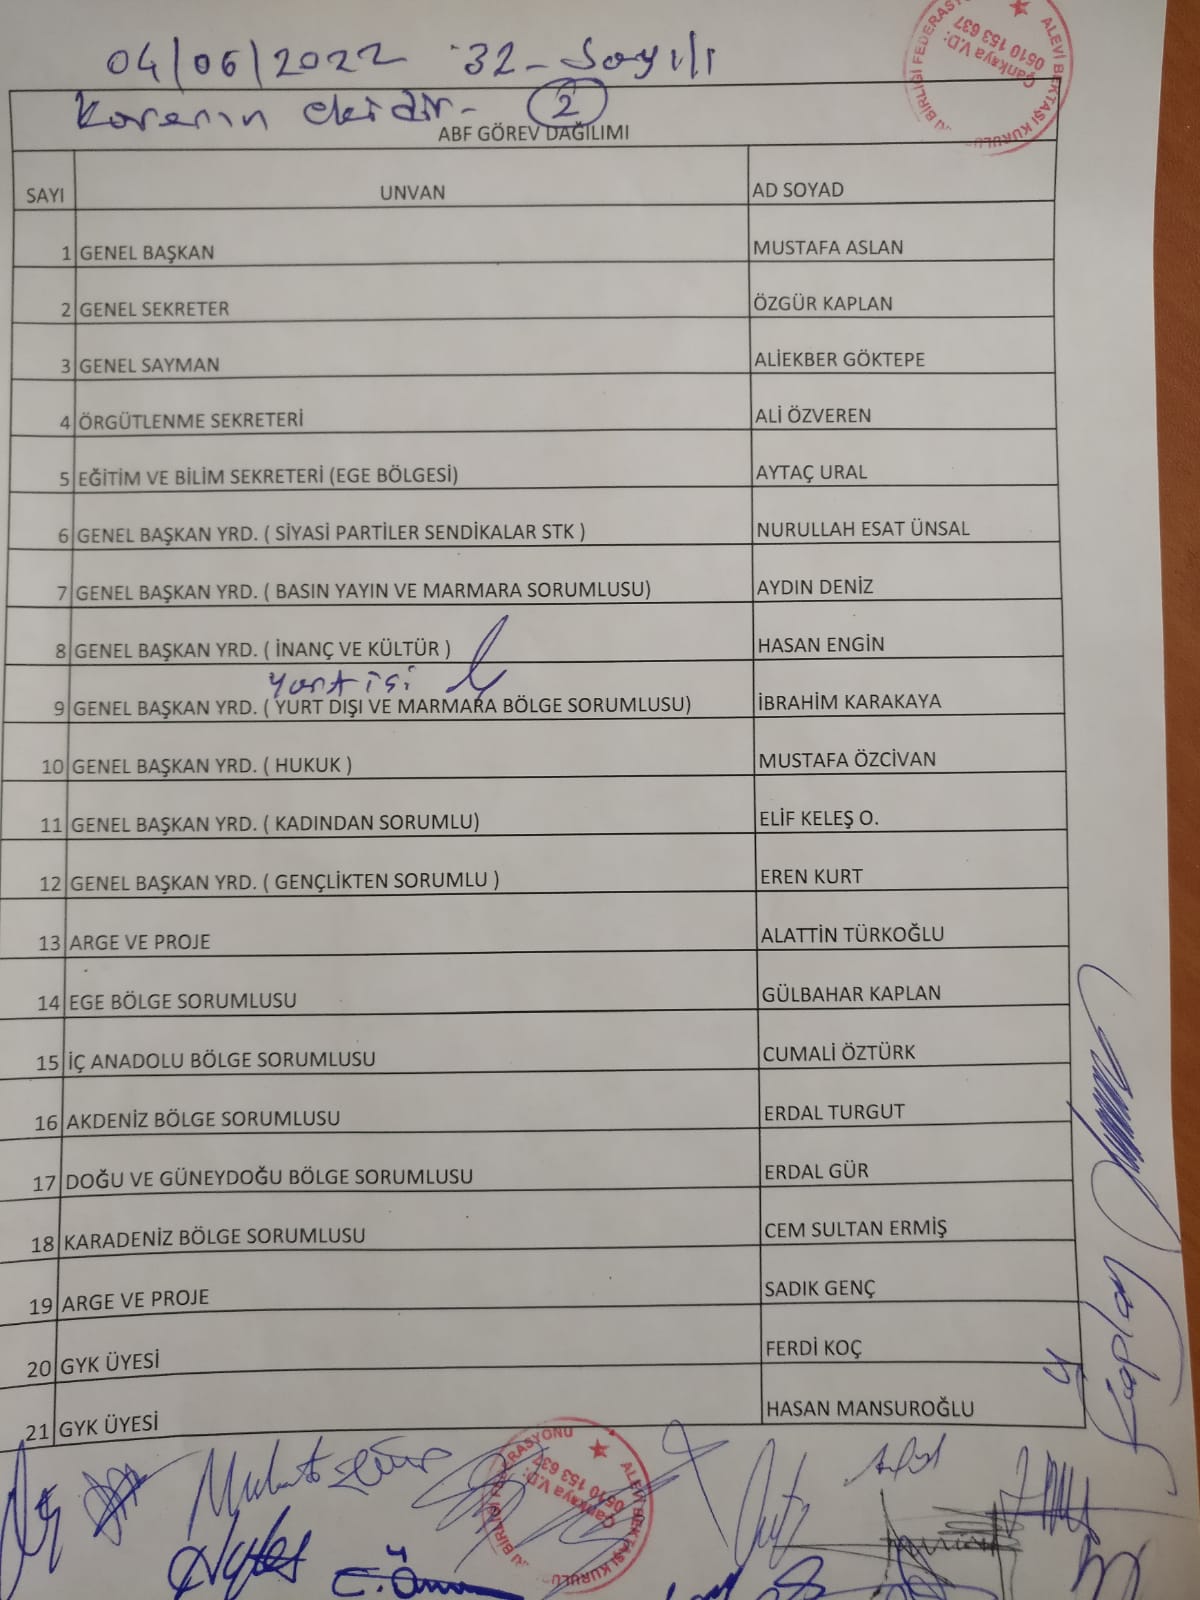 04/06/2022 32-Sayılı
Kararın ekidir- 2
ABF GÖREV DAĞILIMI
SAYI UNVAN AD SOYAD
1 GENEL BAŞKAN MUSTAFA ASLAN
2 GENEL SEKRETER ÖZGÜR KAPLAN
3 GENEL SAYMAN ALİEKBER GÖKTEPE
4 ÖRGÜTLENME SEKRETERİ ALİ ÖZVEREN
5 EĞİTİM VE BİLİM SEKRETERİ (EGE BÖLGESİ) AYTAÇ URAL
6 GENEL BAŞKAN YRD. ( SİYASİ PARTİLER SENDİKALAR STK ) NURULLAH ESAT ÜNSAL
7 GENEL BAŞKAN YRD. ( BASIN YAYIN VE MARMARA SORUMLUSU) AYDIN DENİZ
8 GENEL BAŞKAN YRD. ( İNANÇ VE KÜLTÜR ) HASAN ENGİN
yurt içi
9 GENEL BAŞKAN YRD. ( YURT DIŞI VE MARMARA BÖLGE SORUMLUSU) İBRAHİM KARAKAYA
10 GENEL BAŞKAN YRD. ( HUKUK ) MUSTAFA ÖZCİVAN
11 GENEL BAŞKAN YRD. ( KADINDAN SORUMLU) ELİF KELEŞ O.
12 GENEL BAŞKAN YRD. ( GENÇLİKTEN SORUMLU ) EREN KURT
13 ARGE VE PROJE ALATTİN TÜRKOĞLU
14 EGE BÖLGE SORUMLUSU GÜLBAHAR KAPLAN
15 İÇ ANADOLU BÖLGE SORUMLUSU CUMALİ ÖZTÜRK
16 AKDENİZ BÖLGE SORUMLUSU ERDAL TURGUT
17 DOĞU VE GÜNEYDOĞU BÖLGE SORUMLUSU ERDAL GÜR
18 KARADENİZ BÖLGE SORUMLUSU CEM SULTAN ERMİŞ
19 ARGE VE PROJE SADIK GENÇ
20 GYK ÜYESİ FERDİ KOÇ
21 GYK ÜYESİ HASAN MANSUROĞLU
ALEVİ BEKTAŞİ KURULU BİRLİĞİ FEDERASYONU
Çankaya V.D:
0510 153 637
ALEVİ BEKTAŞİ KURULU BİRLİĞİ FEDERASYONU
Çankaya V.D:
0510 153 637